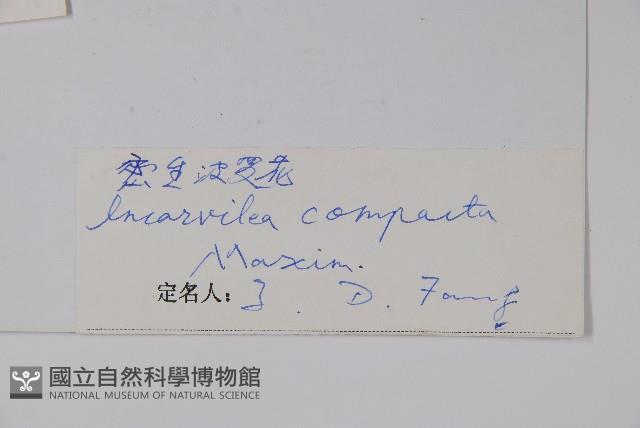 密生波罗花
Incarvilea compacta
Maxim.
定名人: J. D. Fang
國立自然科學博物館
NATIONAL MUSEUM OF NATURAL SCIENCE